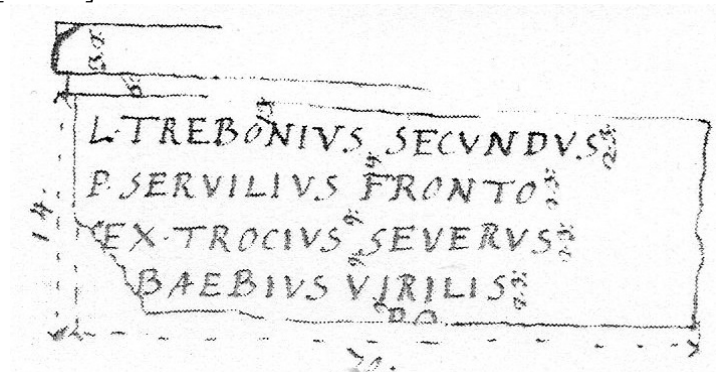 L·TREBONIVS SECVNDVS
P·SERVILIVS FRONTO
EX·TROCIVS SEVERVS
BAEBIVS VIRILIS